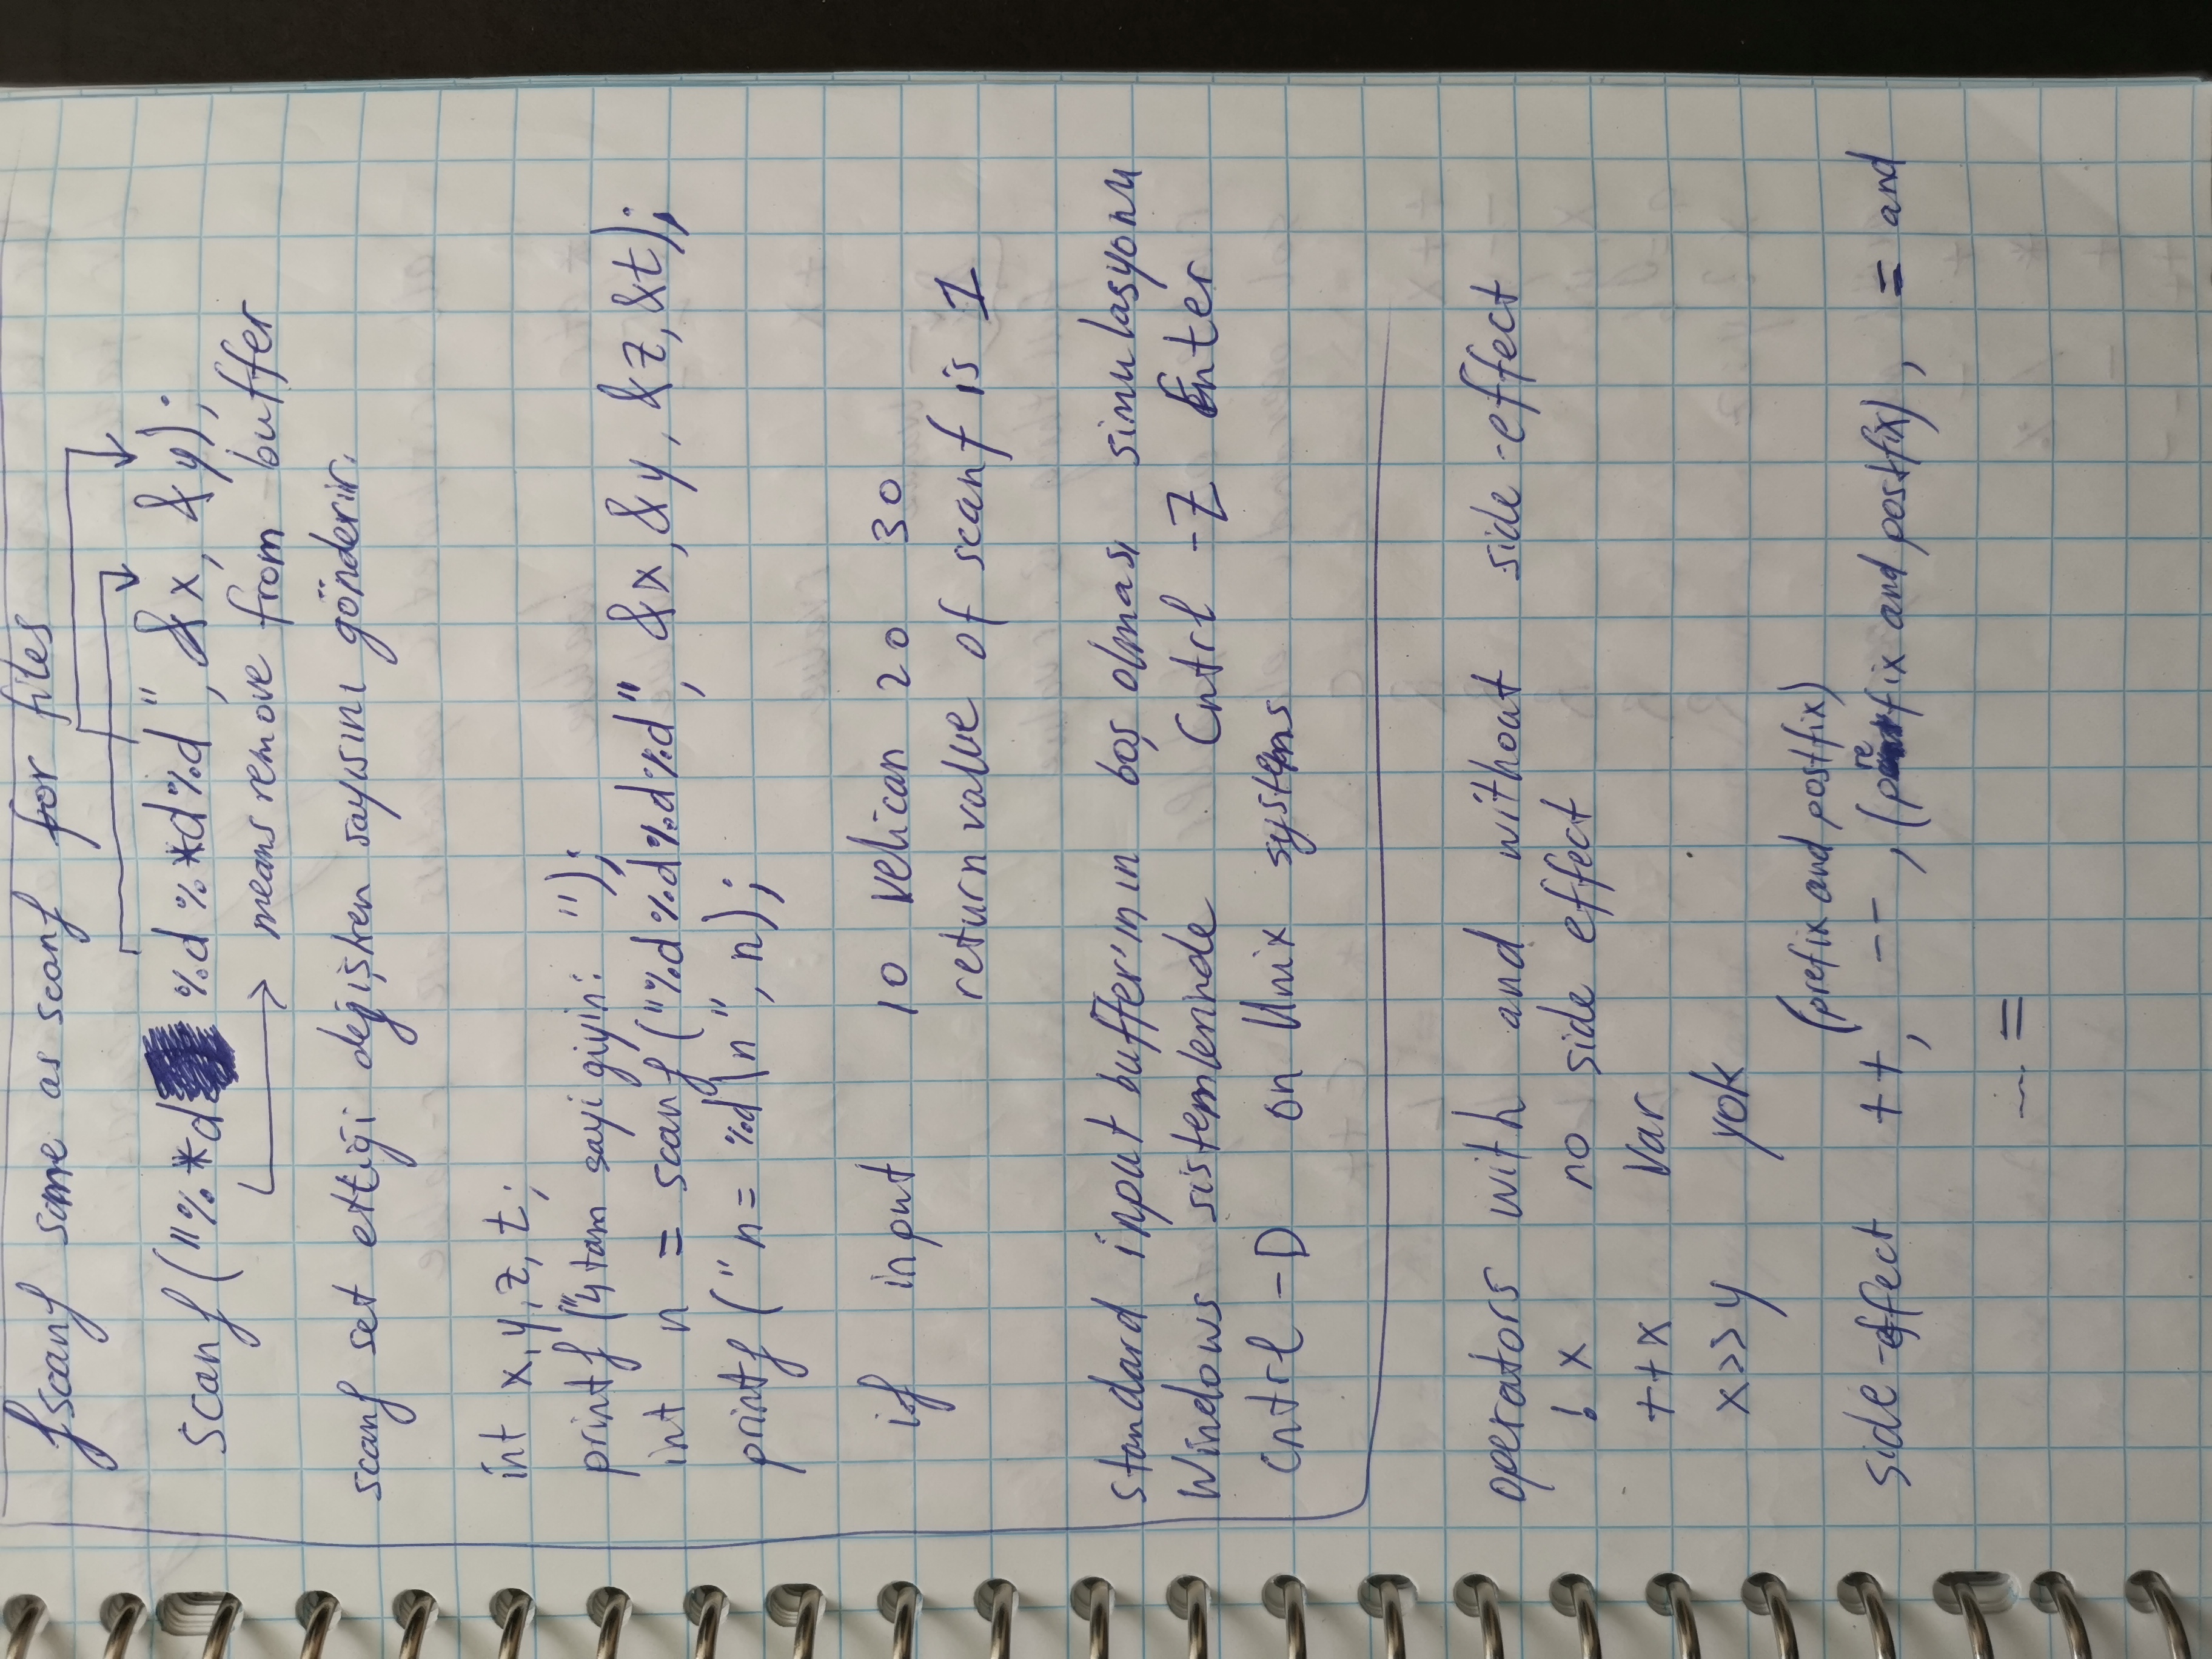 fscanf same as scanf for files
scanf("%*d %d %*d%d", &x, &y);
means remove from buffer
scanf set ettiği değişken sayısını gönderir.
int x, y, z, t;
printf("4 tam sayi giyin: ");
int n = scanf("%d%d%d%d", &x, &y, &z, &t);
printf("n= %d\n", n);
if input 10 velican 20 30
return value of scanf is 1
standard input buffer'ının boş olması simulasyonu
Windows sistemlerinde Cntrl -Z Enter
Cntrl -D on Unix systems
operators with and without side-effect
! x no side effect
++x Var
x>>y yok
(prefix and postfix)
side-effect ++, --, (prefix and postfix), = and
...=